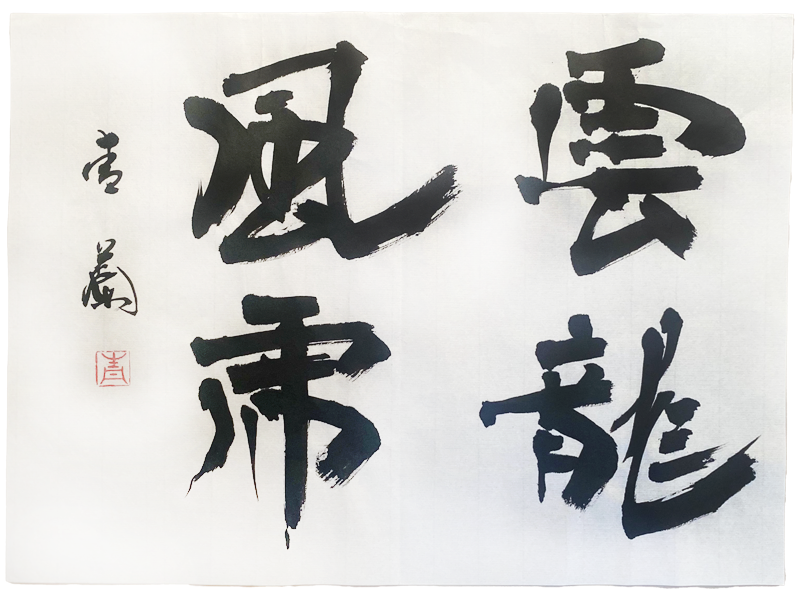 雲龍
風虎
青蘭
青